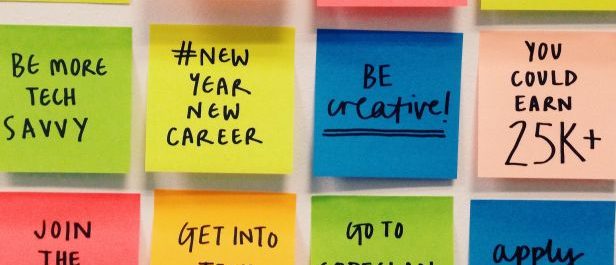 BE MORE
TECH
SAVVY
#NEW
YEAR
NEW
CAREER
BE
creative!
YOU
COULD
EARN
25K+
JOIN
THE
GET INTO
GO TO
apply